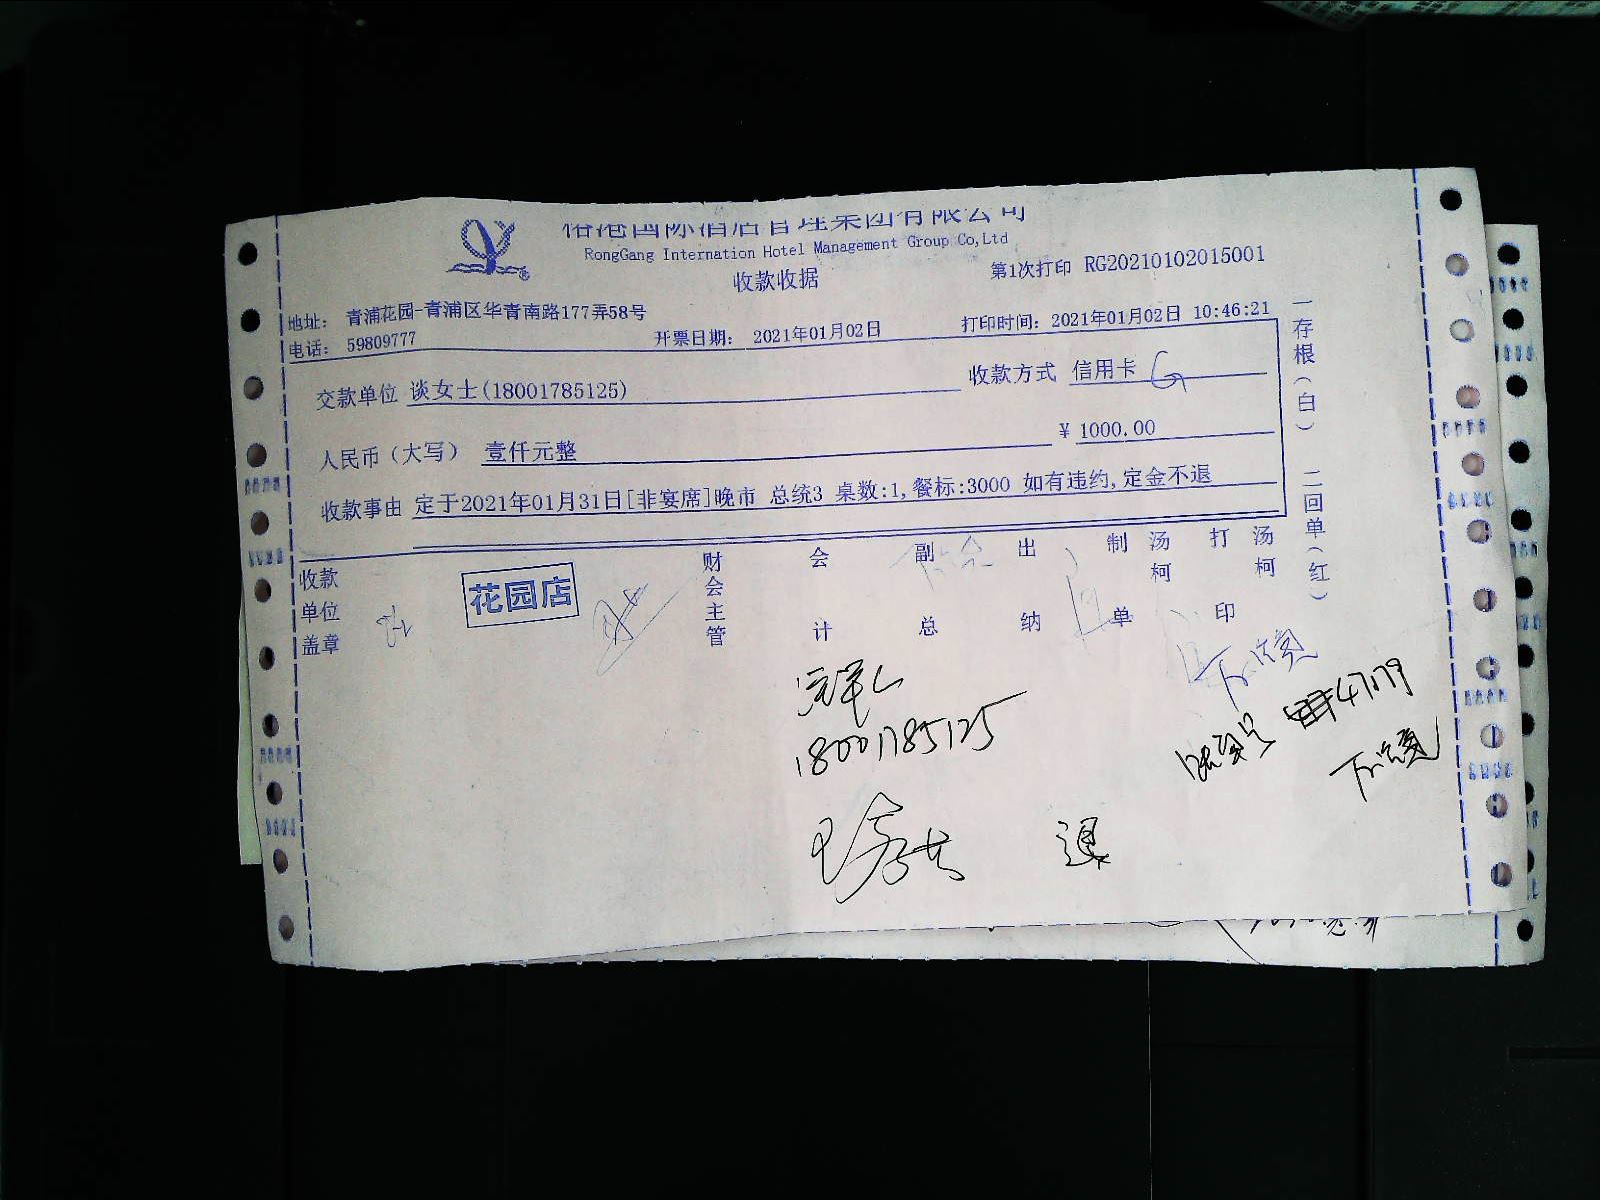 国际酒店管理集团有限公司
RongGang Internation Hotel Management Group Co,Ltd
收款收据
第1次打印 RG20210102015001
地址: 青浦花园-青浦区华青南路177弄58号
电话: 59809777
开票日期: 2021年01月02日
打印时间: 2021年01月02日 10:46:21
交款单位 谈女士(18001785125)
收款方式 信用卡
人民币(大写) 壹仟元整
¥ 1000.00
收款事由 定于2021年01月31日[非宴席]晚市 总统3 桌数:1,餐标:3000 如有违约,定金不退
一存根(白) 二回单(红)
收款单位盖章
花园店
财会主管
会计
副总
出纳
制单
汤柯
打印
汤柯
18001785125
47179
退